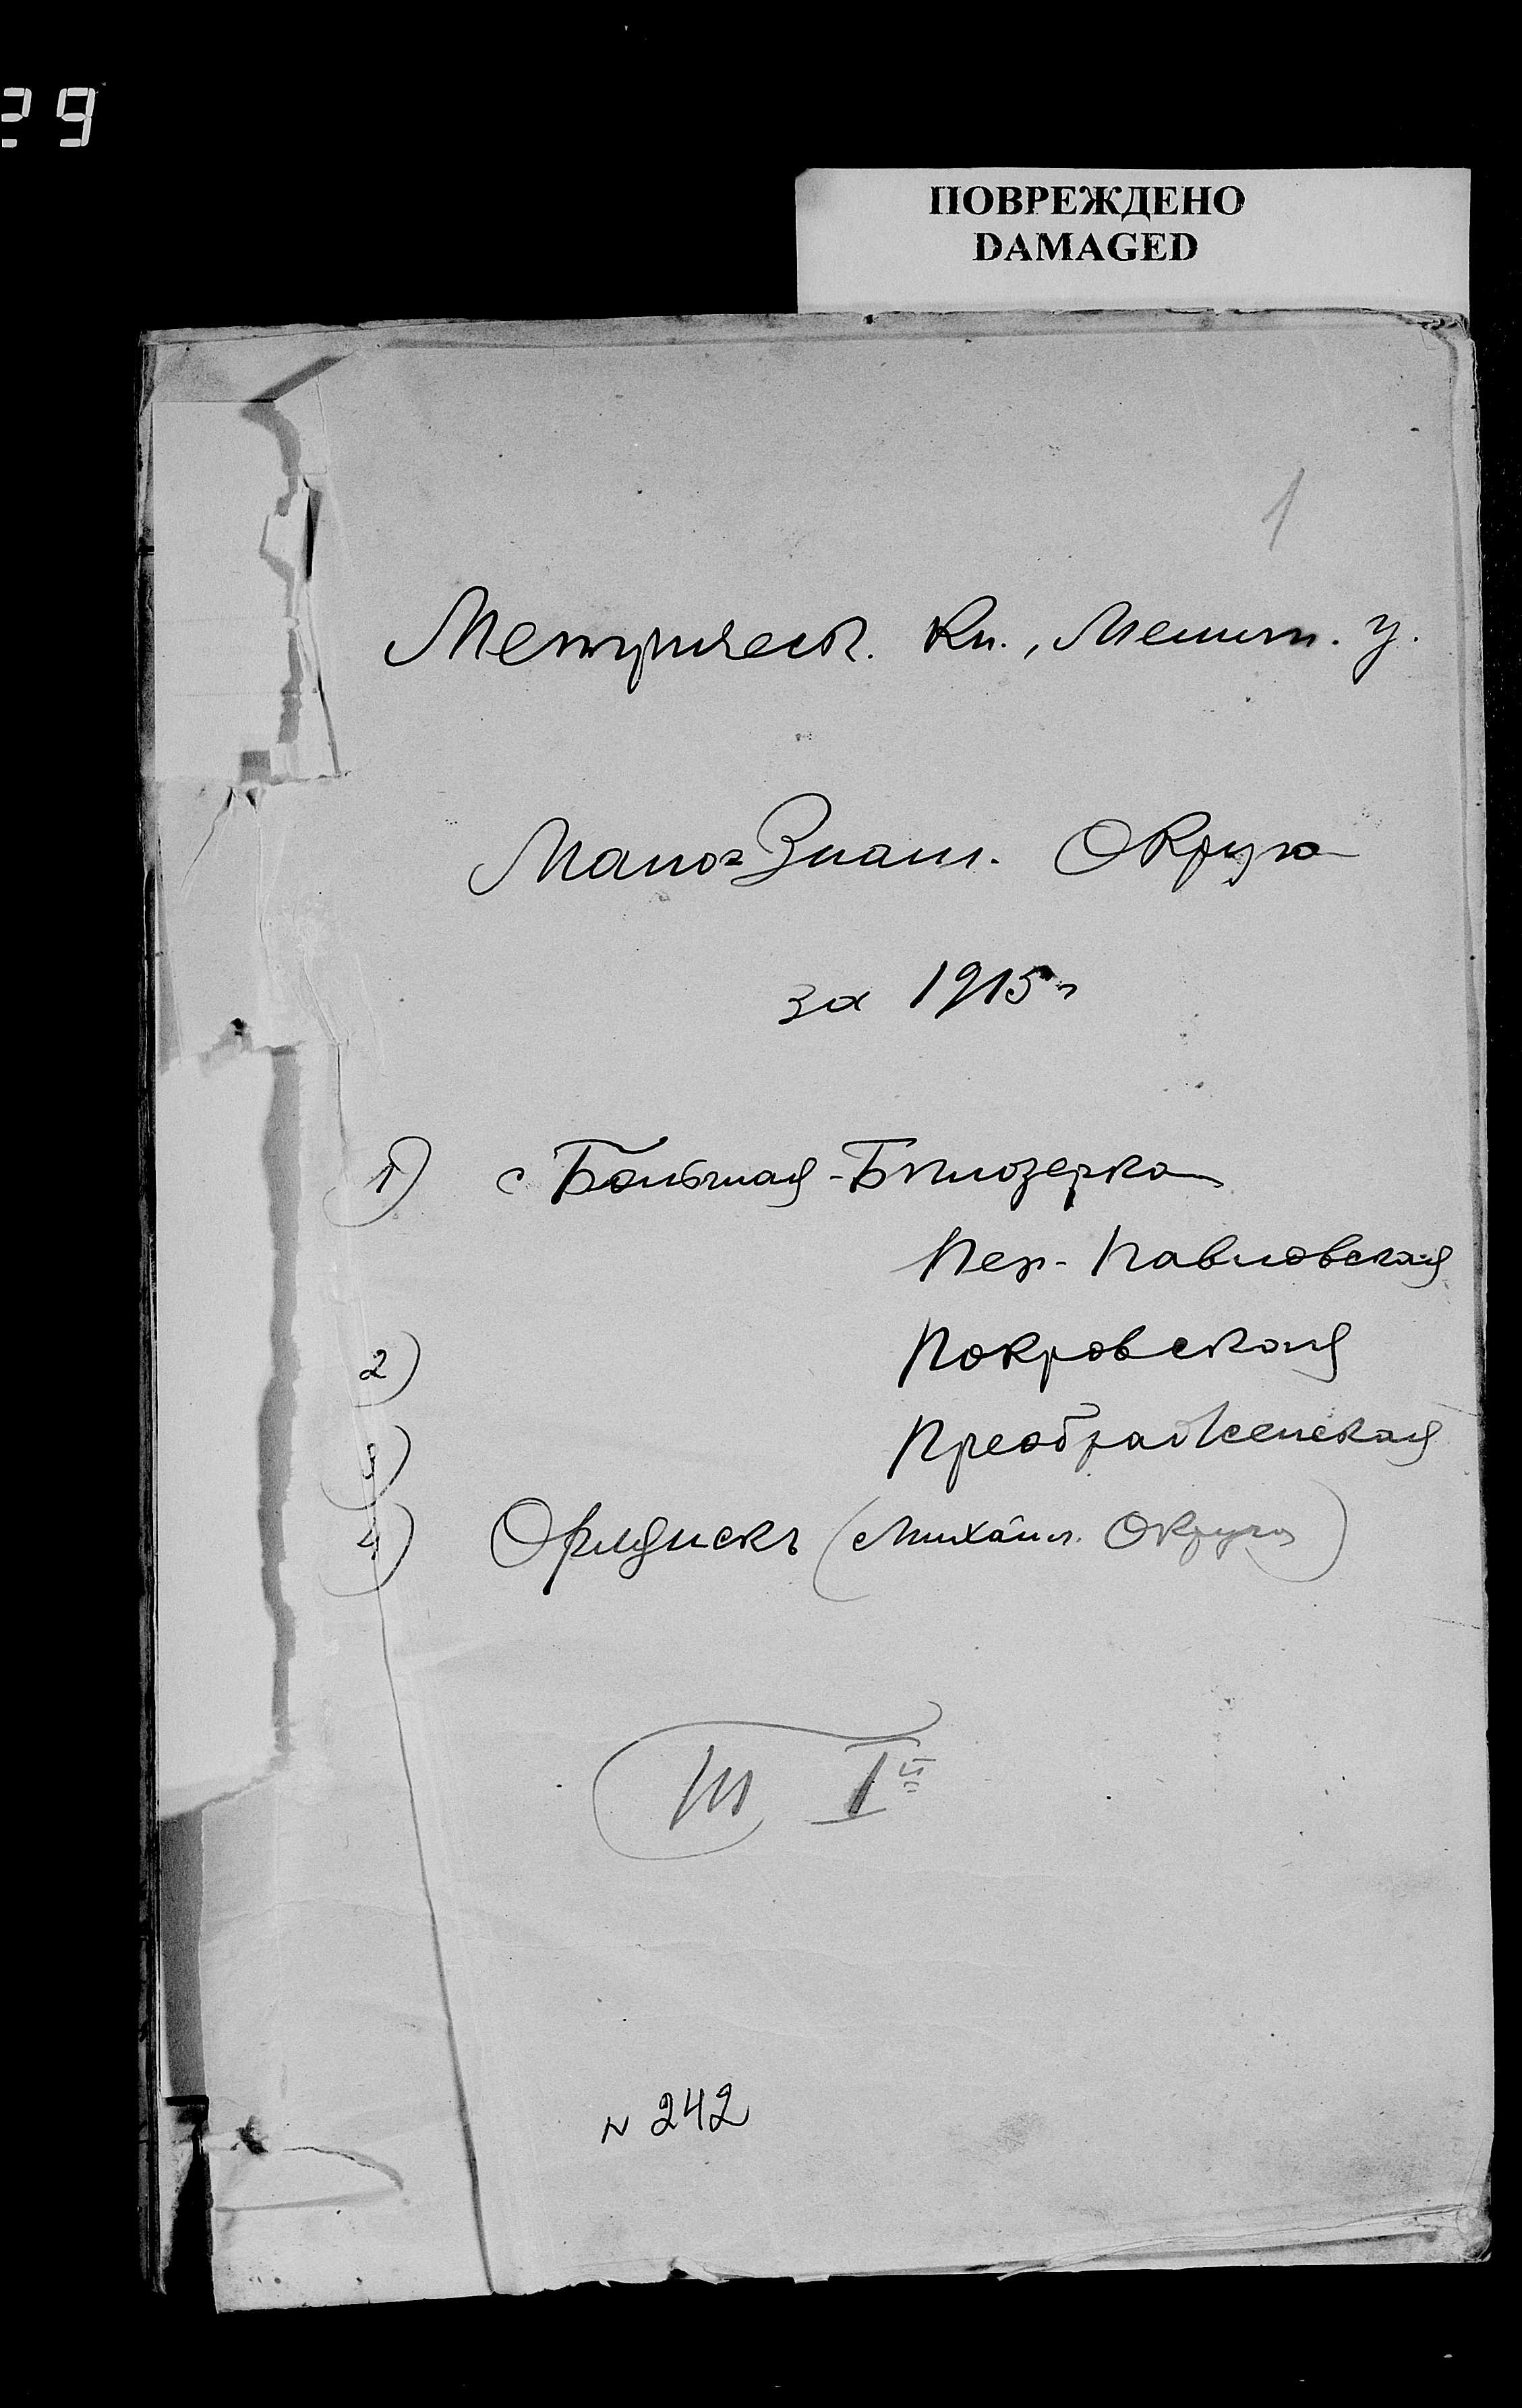 29
ПОВРЕЖДЕНО
DAMAGED
1
Метрическ. Кн., Мелит. у.
Мало-Знам. Округа
за 1915 г
1) с Большая-Бѣлозерка
Пет-Павловская
2) Покровская
3) Преображенская
4) Орлянскъ (Михайл. Округа)
III I й
N 242